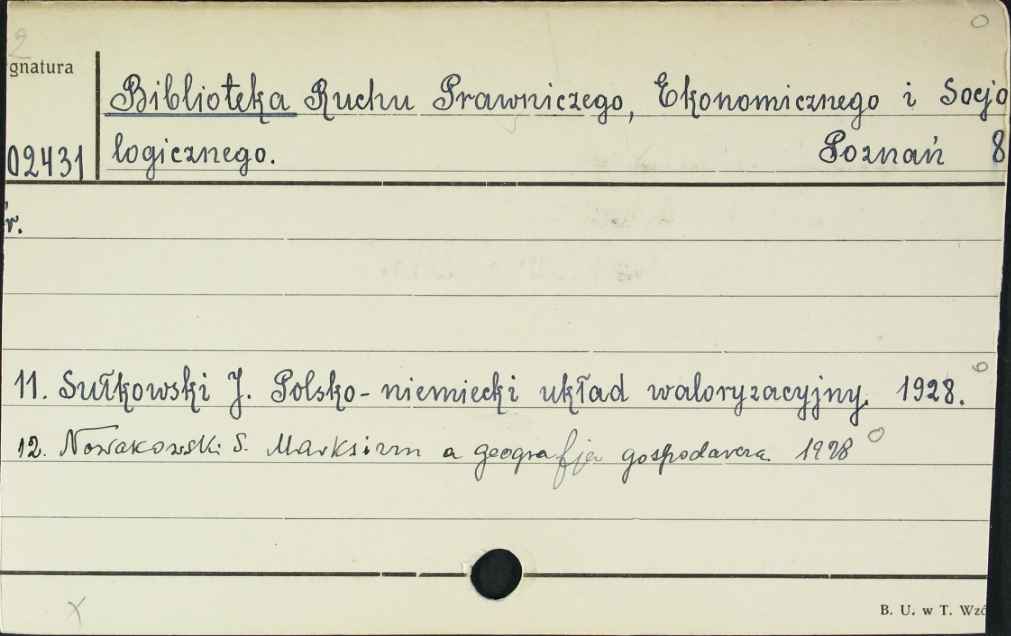 2
gnatura
Biblioteka Ruchu Prawniczego, Ekonomicznego i Socjo
02431 logicznego. Poznań 8
r.
11. Sułkowski J. Polsko-niemiecki układ waloryzacyjny. 1928.
12. Nowakowski S. Marksizm a geografja gospodarcza 1928
B. U. w T. Wzó